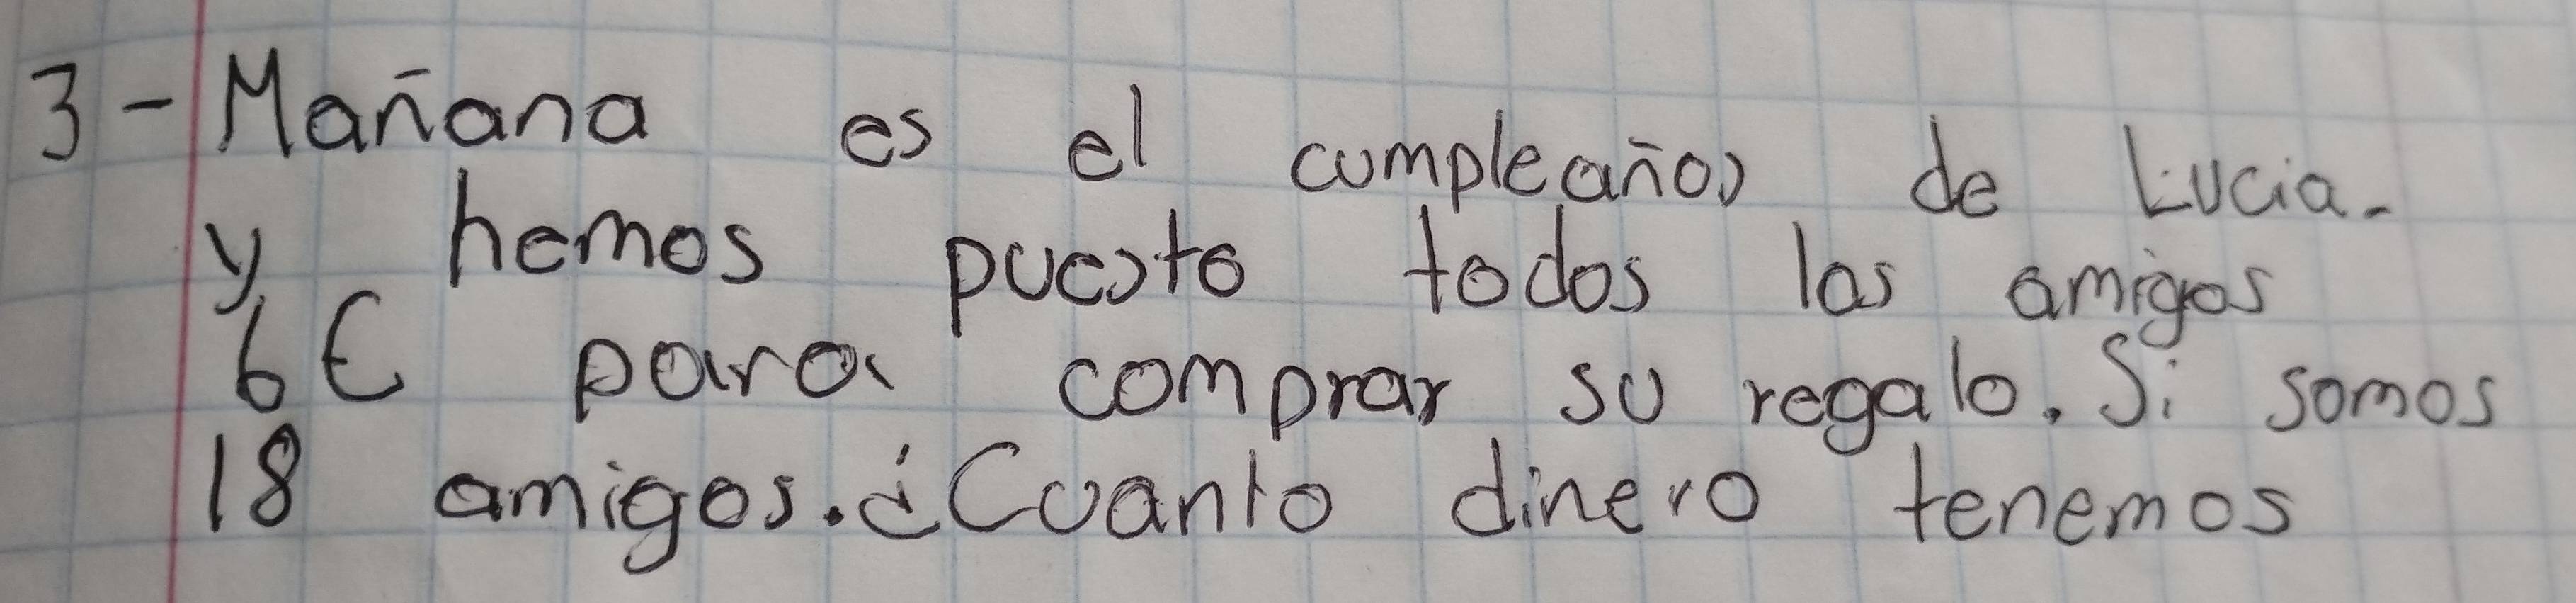 3-Mañana es el cumpleaños de Lucia.
y hemos puesto todos los amigos
6€ para comprar su regalo. Si somos
18 amigos. ¿Cuanto dinero tenemos